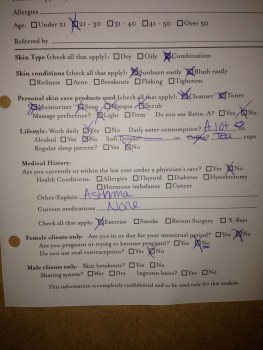 Allergies
Age: ☐Under 21 ☒21 - 30 ☐31 - 40 ☐41 - 50 ☐Over 50
Referred by
Skin Type (check all that apply): ☐Dry ☐Oily ☒Combination
Skin conditions (check all that apply): ☒Sunburn easily ☒Blush easily
☐Redness ☐Acne ☐Breakouts ☐Flaking ☐Tightness
Personal skin care products used (check all that apply): ☒Cleanser ☒Toner
☒Moisturizer ☒Soap ☒Masque ☒Scrub
Massage preference? ☒Light ☐Firm Do you use Retin-A? ☐Yes ☒No
Lifestyle: Work daily ☒Yes ☐No Daily water consumption? A lot
Alcohol ☐Yes ☒No Soft or Tea cups
Regular sleep pattern? ☐Yes ☒No
Medical History:
Are you currently or within the last year under a physician's care? ☐Yes ☒No
Health Conditions: ☐Allergies ☐Thyroid ☐Diabetes ☐Hysterectomy
☐Hormone imbalances ☐Cancer
Other/Explain Asthma
Current medications None
Check all that apply: ☒Exercise ☐Smoke ☐Recent Surgery ☐X-Rays
Female clients only: Are you in or due for your menstrual period? ☐Yes ☒No
Are you pregnant or trying to become pregnant? ☐Yes ☒No
Do you use oral contraception? ☐Yes ☒No
Male clients only: Skin breakouts? ☐Yes ☐No
Shaving system? ☐Wet ☐Dry Ingrown hairs? ☐Yes ☐No
This information is completely confidential and to be used only for this analysis